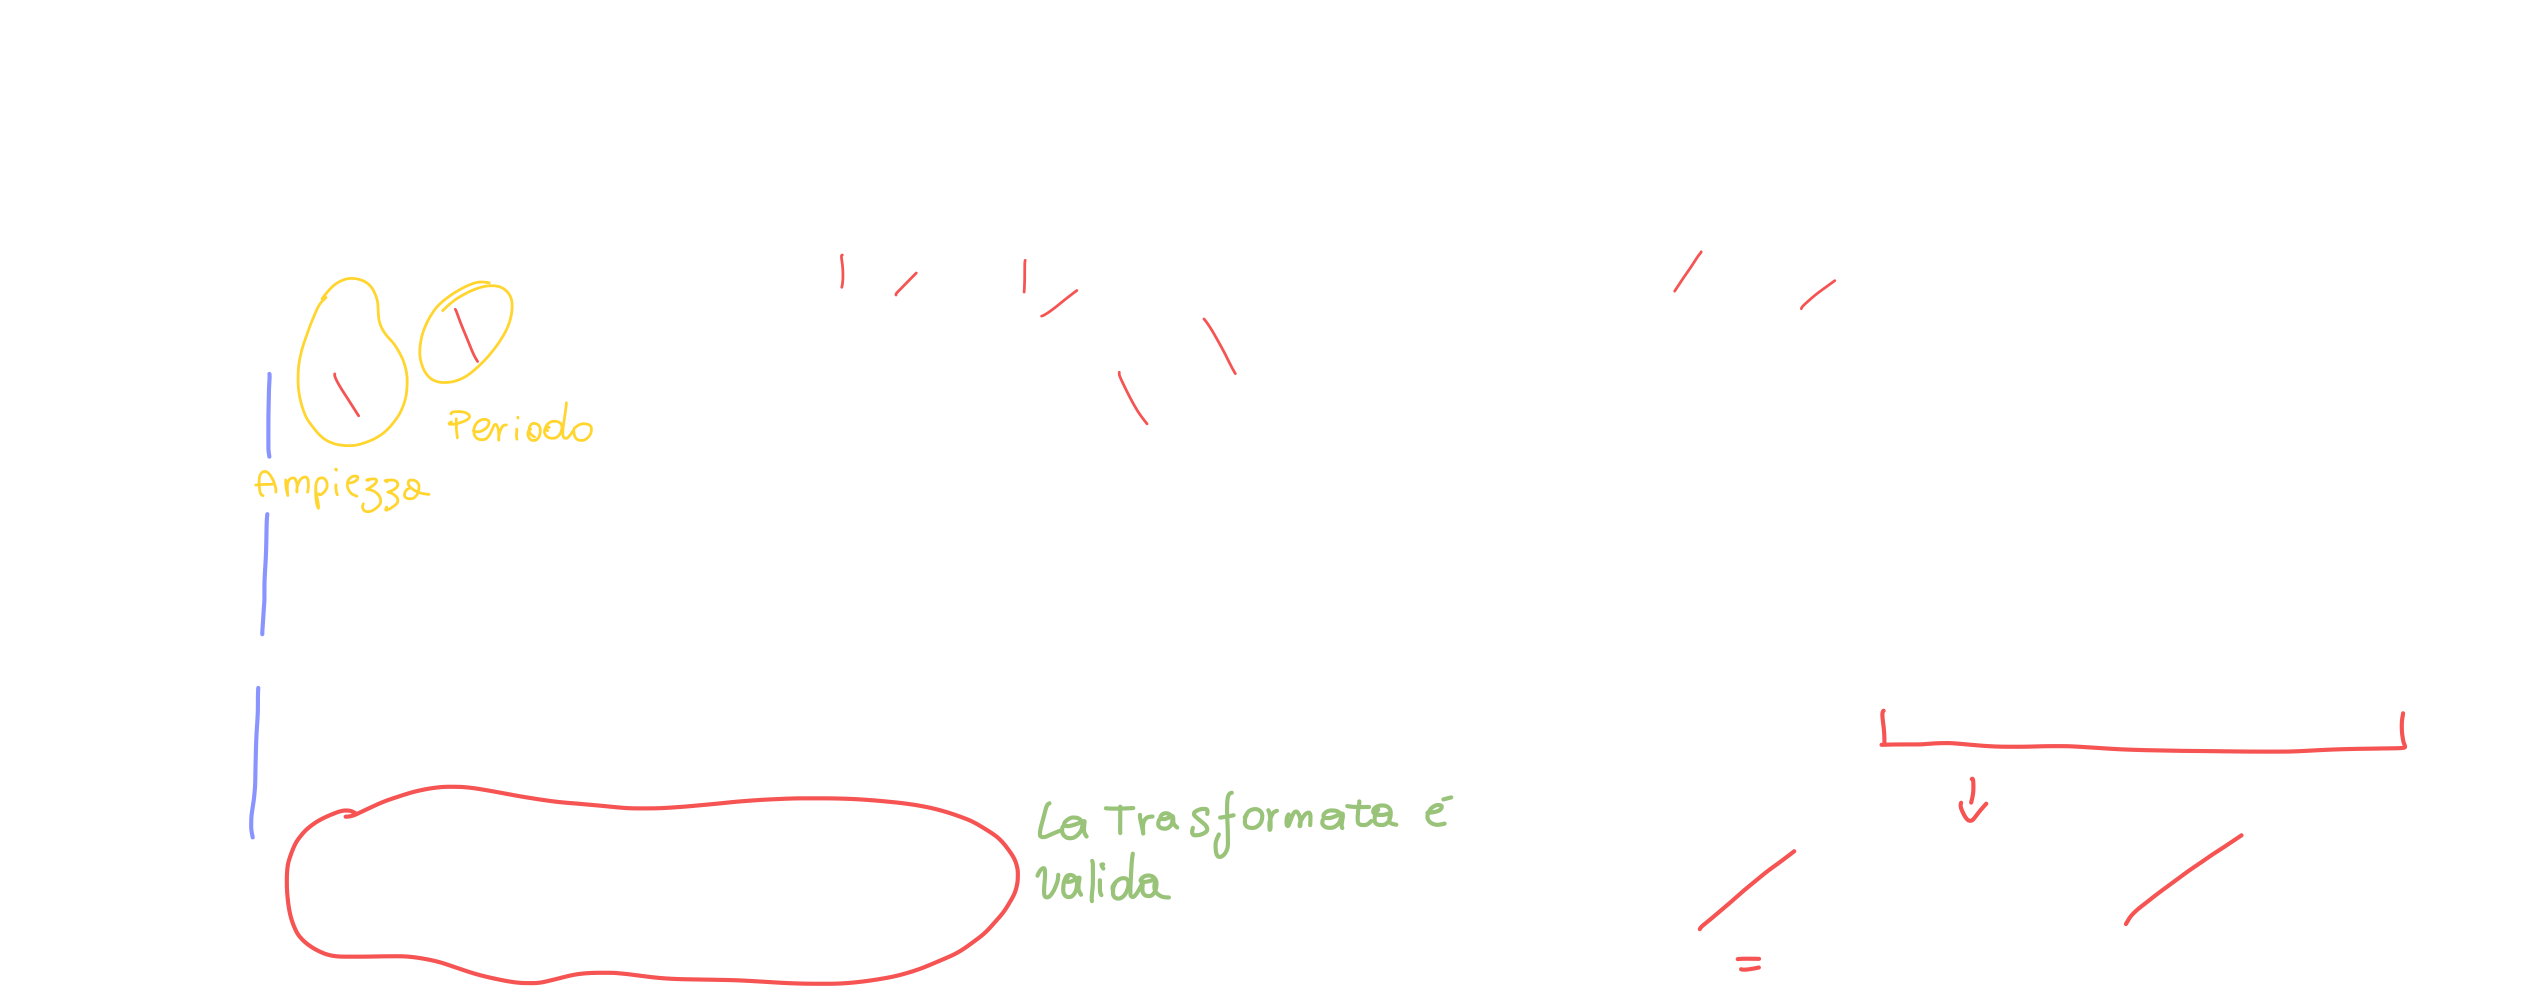 Periodo
Ampiezza
La Trasformata é
valida
=